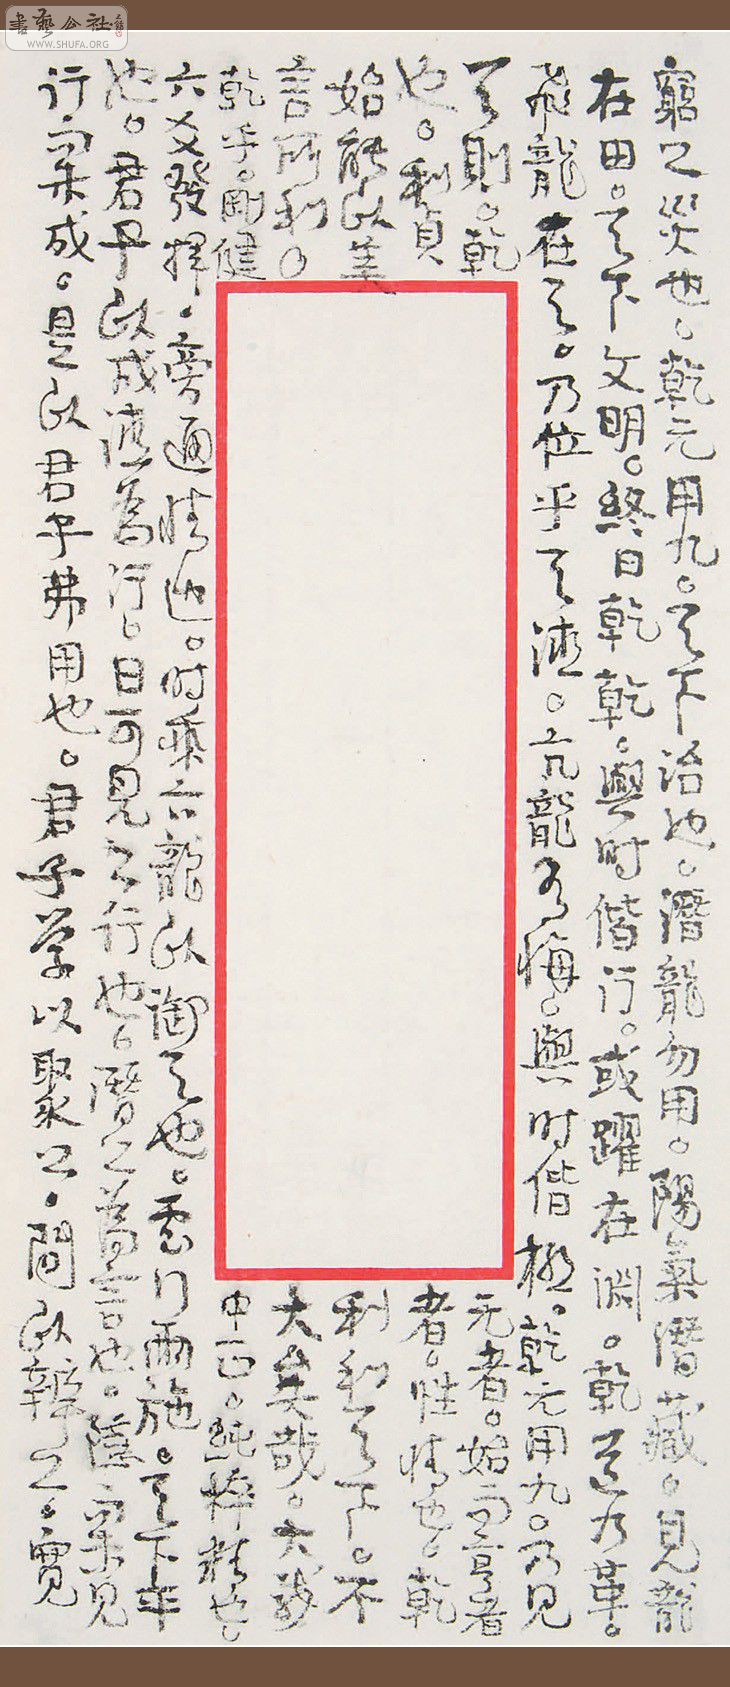 書藝公社
WWW.SHUFA.ORG
窮之災也。乾元用九。天下治也。潛龍勿用。陽氣潛藏。見龍
在田。天下文明。終日乾乾。與時偕行。或躍在淵。乾道乃革。
飛龍在天。乃位乎天德。亢龍有悔。與時偕極。乾元用九。乃見
天則。乾元者。始而亨者
也。利貞者。性情也。乾
始能以美利利天下。不
言所利。大矣哉。大哉
乾乎。剛健中正。純粹精也。
六爻發揮。旁通情也。時乘六龍以御天也。雲行雨施。天下平
也。君子以成德為行。日可見之行也。潛之為言也。隱而未見
行而未成。是以君子弗用也。君子學以聚之。問以辯之。寬